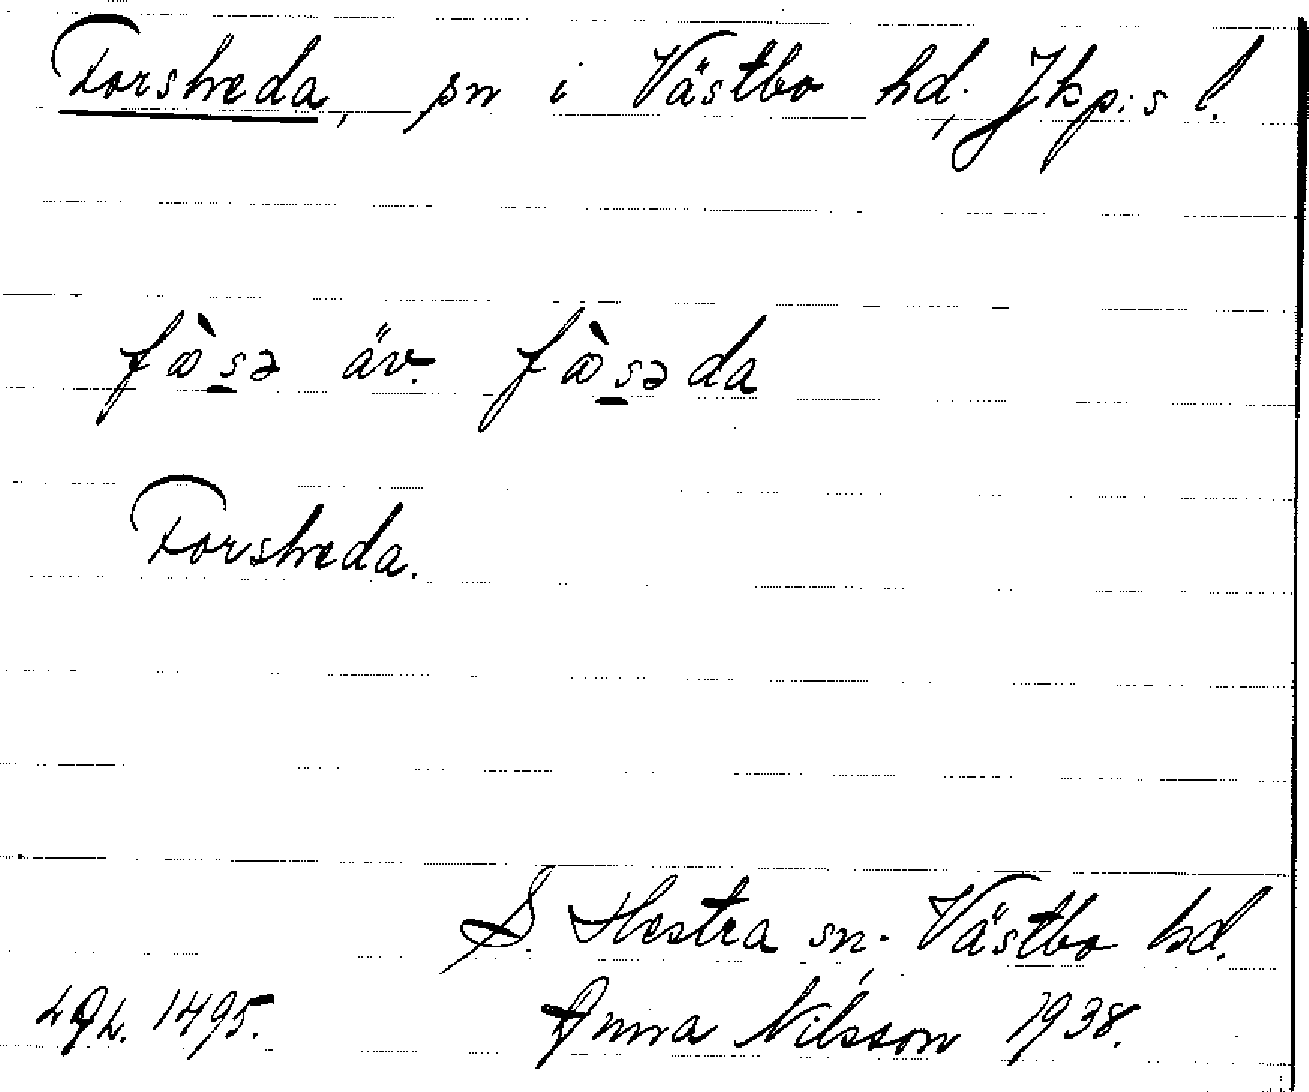 Forsheda, sn i Västbo hd, Jkp:s l.
fɷ̀s̱ə äv. fɷ̀s̱əda
Forsheda.
S. Hestra sn. Västbo hd.
Anna Nilsson 1938.
1495.